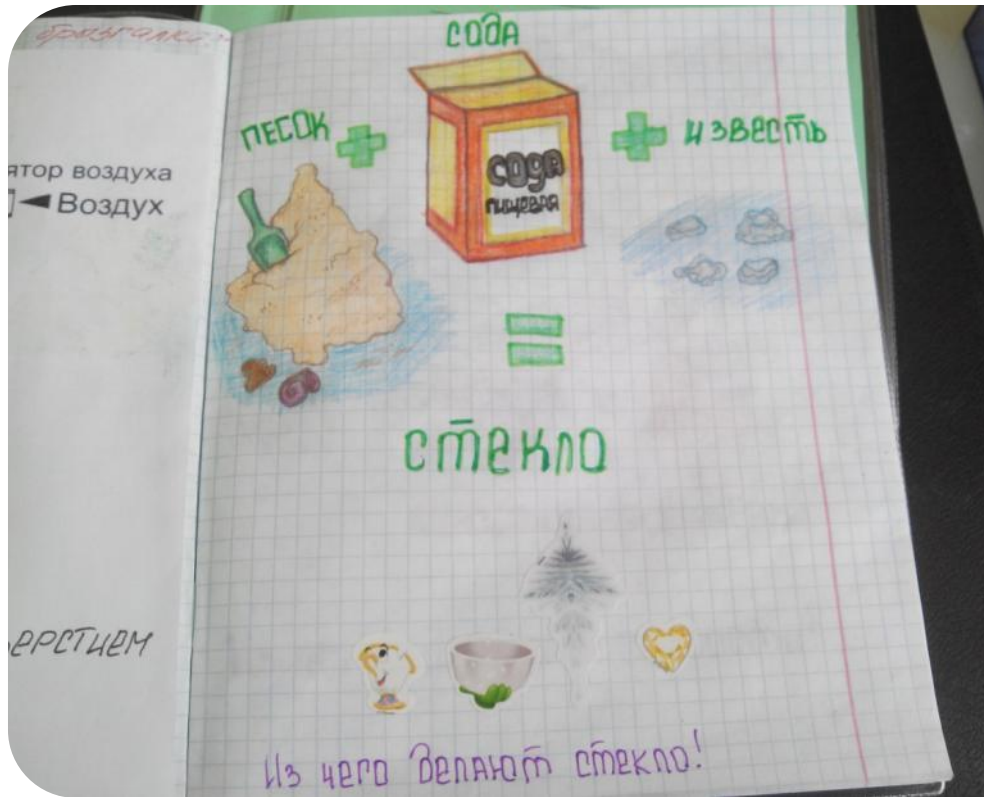 ятор воздуха
Воздух
ерстием
СОДА
ПЕСОК + + ИЗВЕСТЬ
СОДА
пищевая
=
стекло
Из чего делают стекло!